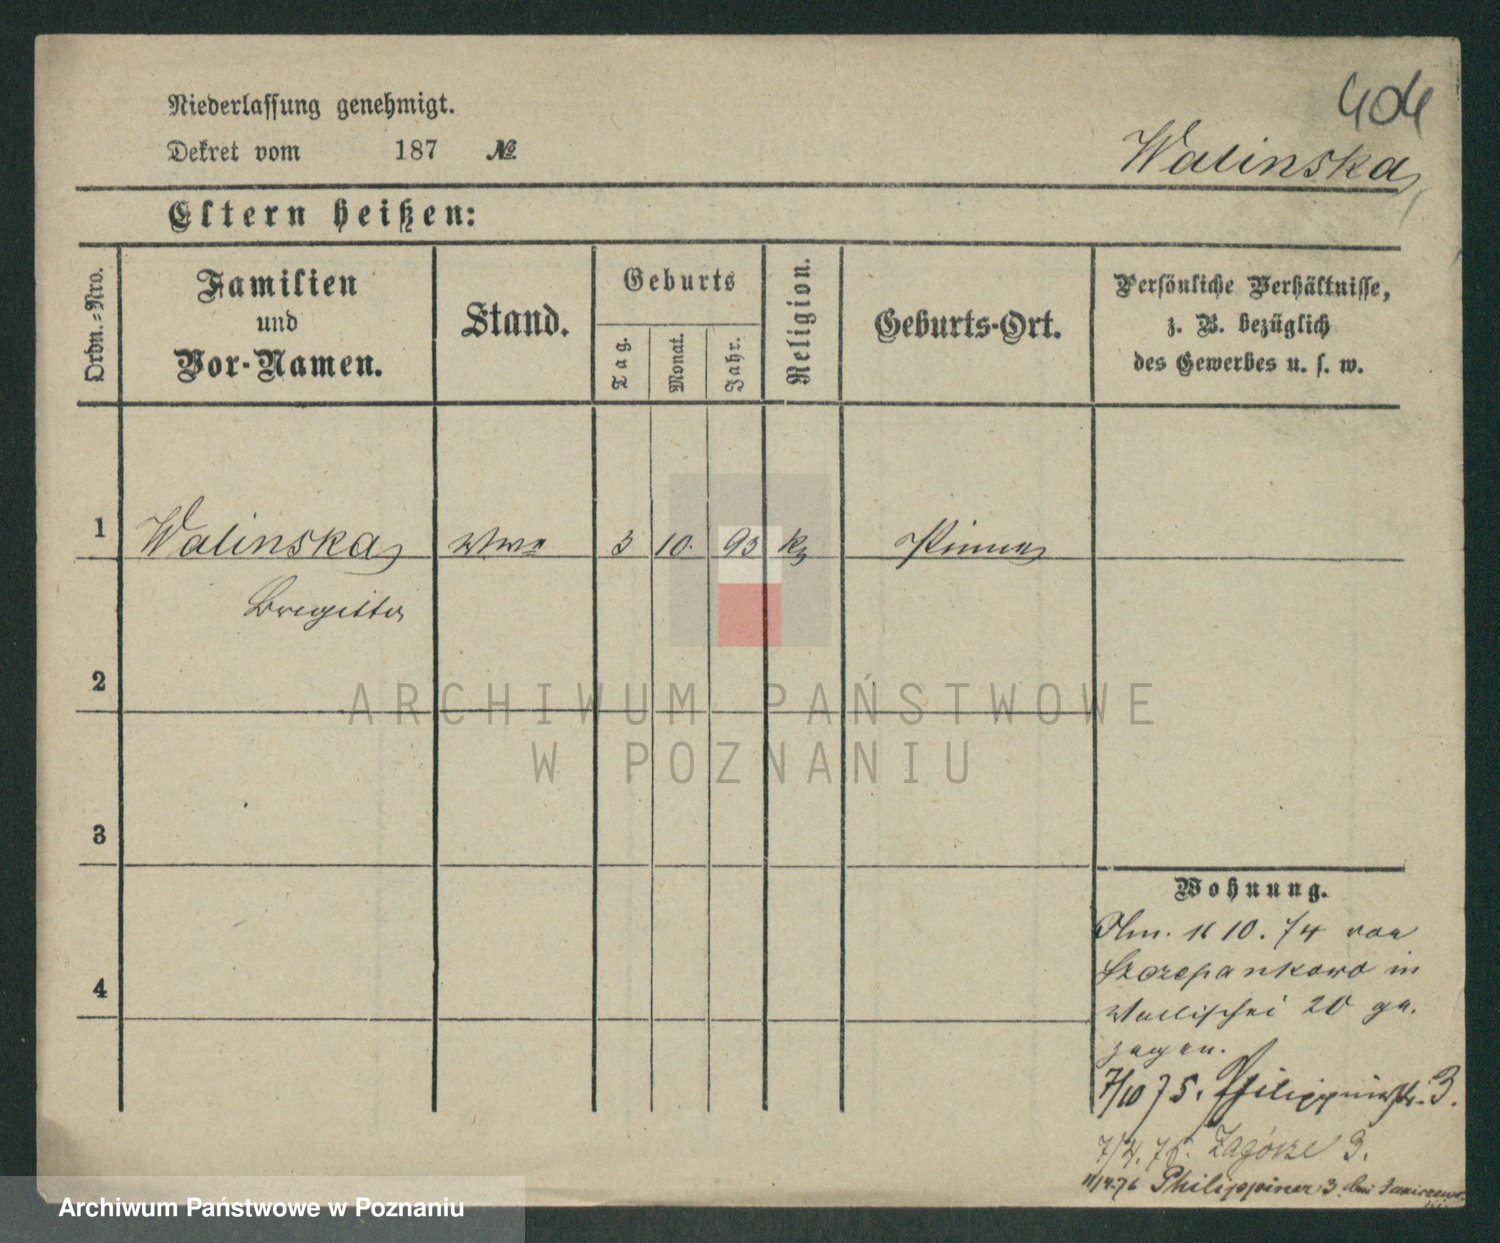 Niederlassung genehmigt.
Dekret vom 187 №
Walinska
Eltern heißen:
Ordn.=Nro.
Familien
und
Vor-Namen.
Stand.
Geburts
Tag.
Monat.
Jahr.
Religion.
Geburts-Ort.
Persönliche Verhältnisse,
z. B. bezüglich
des Gewerbes u. s. w.
1 Walinska Wwe 3 10. 93 Pinne
Brigitta
2
3
4
Wohnung.
10. 74 von
Szczepankowo in
Wallischei 20 ge.
zogen.
7/10 75. Philippinstr. 3.
7/4. 76. Zagórze 3.
Philippiner 3 bei
ARCHIWUM PAŃSTWOWE
W POZNANIU
Archiwum Państwowe w Poznaniu